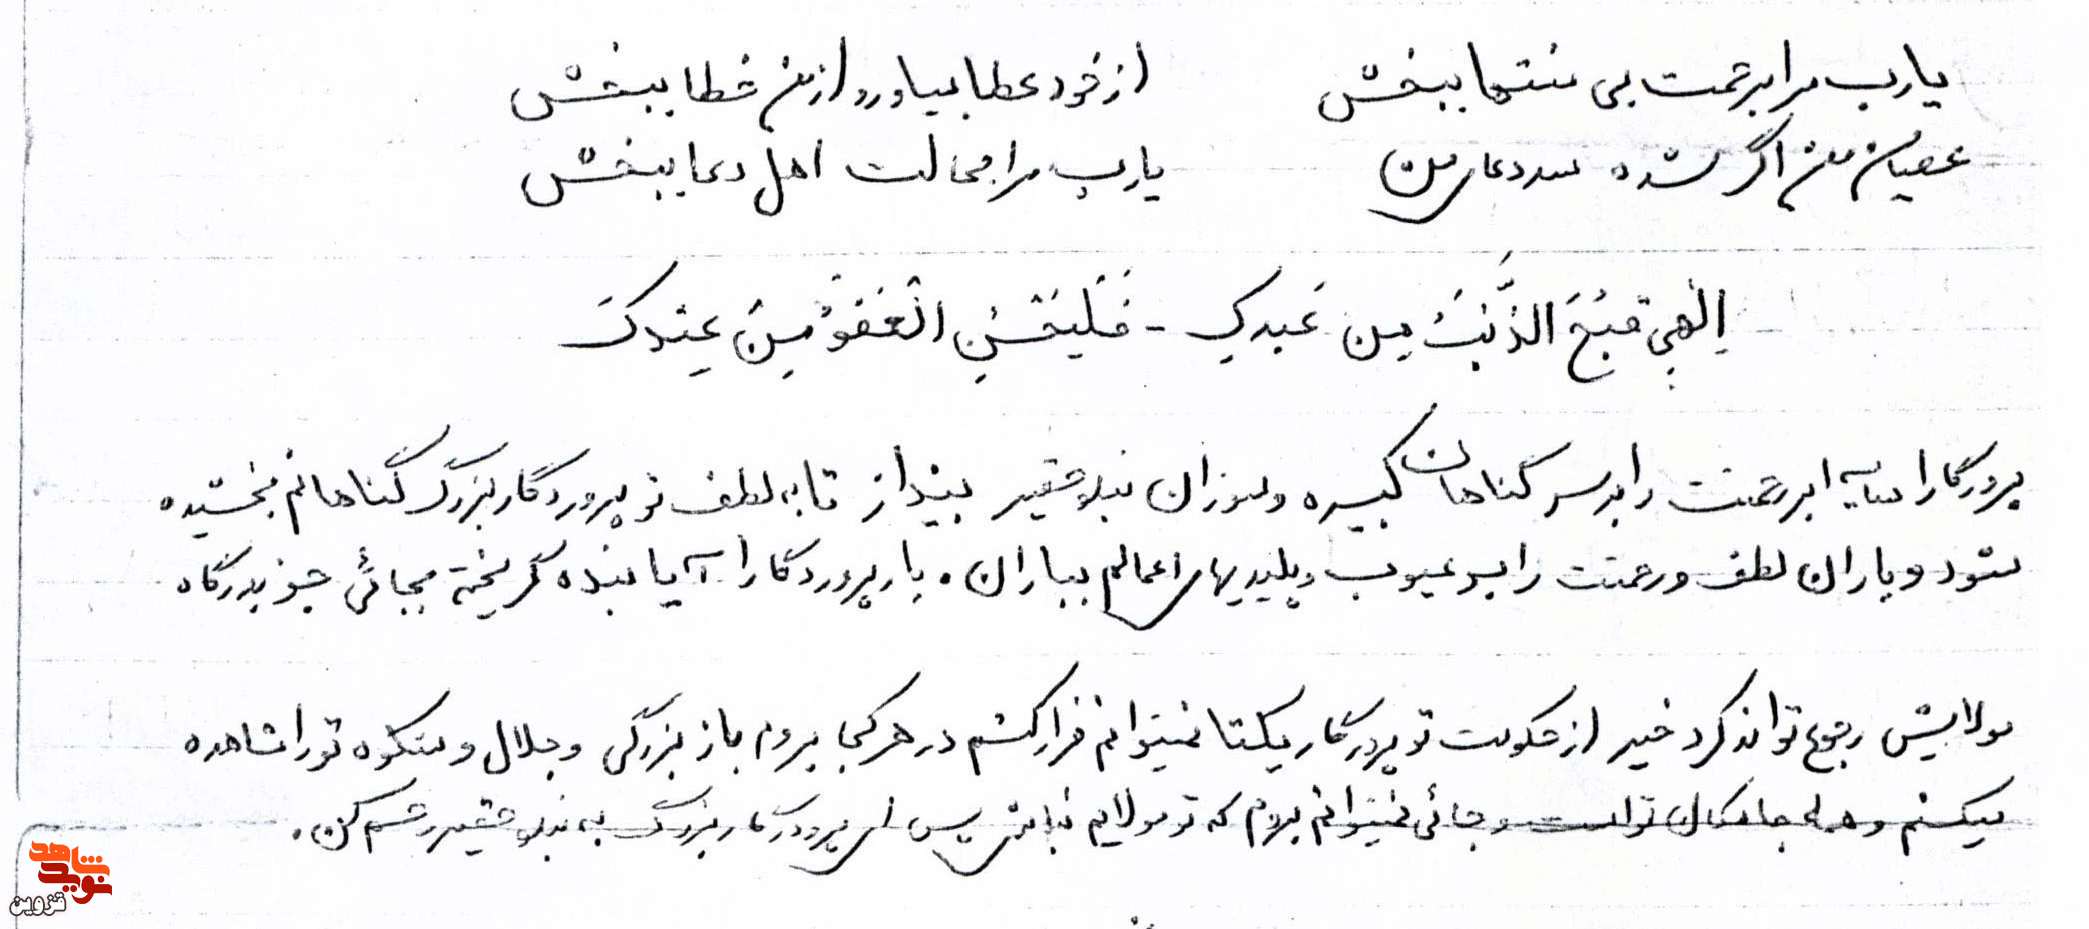 یارب مرا برحمت بی منتها ببخش از خود عطا بیاور و از من خطا ببخش
عصیان من اگر شده سد دعای من یارب مرا بحالت اهل دعا ببخش
اِلٰهی قَبُحَ الذَّنبُ مِن عَبدِکِ - فَلیَحسُنِ العَفوُ مِن عِندِکَ
پروردگارا سایه ابر رحمتت را بر سر گناهان کبیره و سوزان بنده حقیر بینداز تا به لطف تو پروردگار بزرگ گناهانم بخشیده
شود و باران لطف و رحمتت را بر عیوب و پلیدیهای اعمالم بباران . بار پروردگارا آیا بنده گریخته بجائی جز بدرگاه
مولایش رجوع تواند کرد خیر از حکومت تو پروردگار یکتا نمیتوانم فرار کنم در هر کجا بروم باز بزرگی و جلال و شکوه تو را مشاهده
میکنم و همه جا مکان تو است و جائی نمیتوانم بروم که تو مولایم نباشی پس ای پروردگار بزرگ به بنده حقیر رحم کن .
نوید شاهد
قزوین